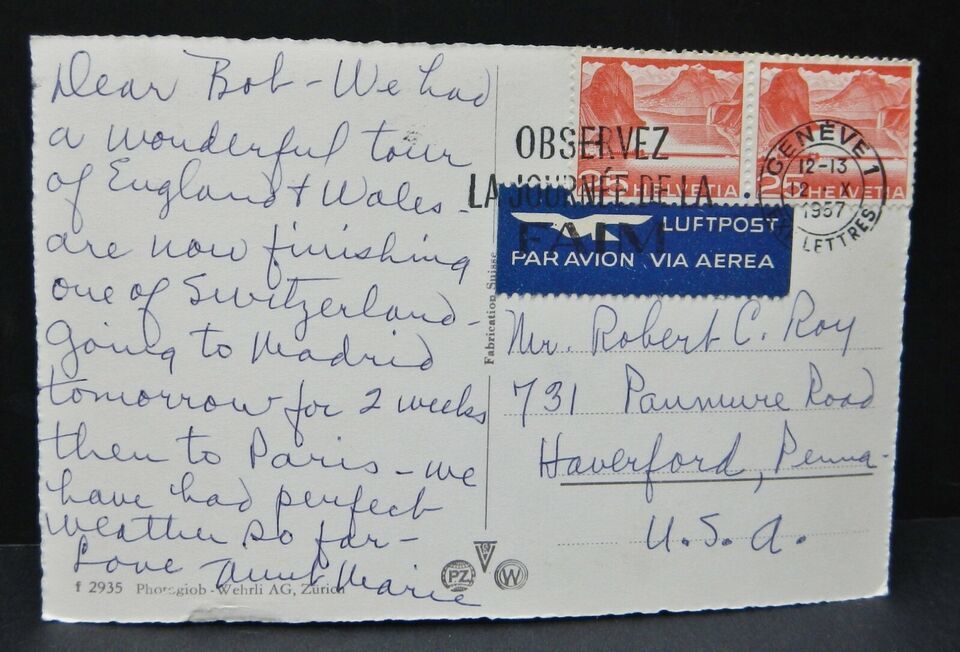 Dear Bob - We had
a wonderful tour
of England & Wales -
are now finishing
one of Switzerland -
Going to Madrid
tomorrow for 2 weeks
then to Paris - we
have had perfect
weather so far -
Love Aunt Marie
f 2935 Photoglob-Wehrli AG, Zürich
Fabrication Suisse
PZ
W
25 HELVETIA
25 HELVETIA
OBSERVEZ
LA JOURNÉE DE LA
FAIM
GENÈVE 1
12-13
12 X
1957
LETTRES
LUFTPOST
PAR AVION VIA AEREA
Mr. Robert C. Roy
731 Panmure Road
Haverford, Penna.
U.S.A.